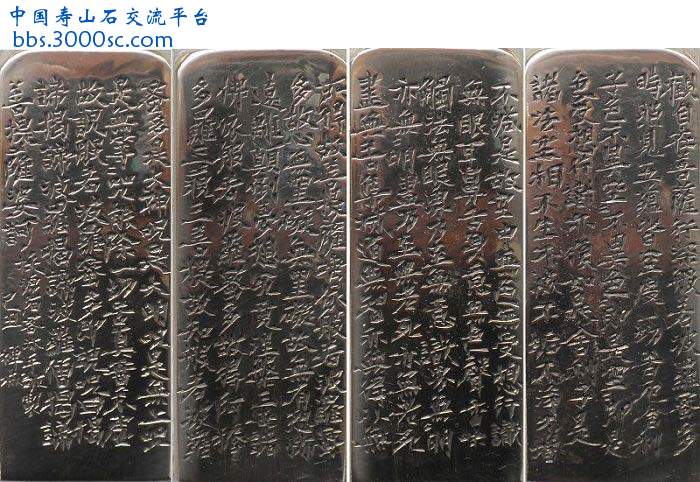 中国寿山石交流平台
bbs.3000sc.com
觀自在菩薩行深般若波羅蜜多
時照見五蘊皆空度一切苦厄舍利
子色不異空空不異色色即是空空即是
色受想行識亦復如是舍利子是
諸法空相不生不滅不垢不淨不增
不減是故空中無色無受想行識
無眼耳鼻舌身意無色聲香味
觸法無眼界乃至無意識界無無明
亦無無明盡乃至無老死亦無老死
盡無苦集滅道無智亦無得以無
所得故菩提薩埵依般若波羅蜜
多故心無罣礙無罣礙故無有恐怖
遠離顛倒夢想究竟涅槃三世諸
佛依般若波羅蜜多故得阿耨
多羅三藐三菩提故知般若波羅
蜜多是大神咒是大明咒是無上咒
是無等等咒能除一切苦真實不虛
故說般若波羅蜜多咒即說咒曰揭
諦揭諦波羅揭諦波羅僧揭諦
菩提薩婆訶